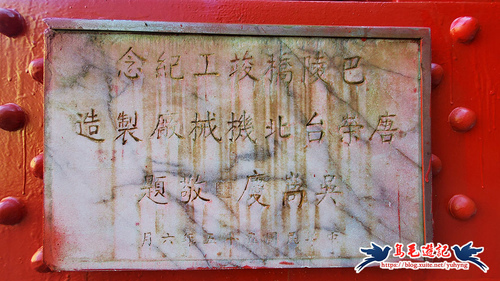 巴陵橋竣工紀念
唐榮台北機械廠製造
吳嵩慶 敬題
中華民國五十五年六月
鳥毛遊記
https://blog.xuite.net/yuhyng